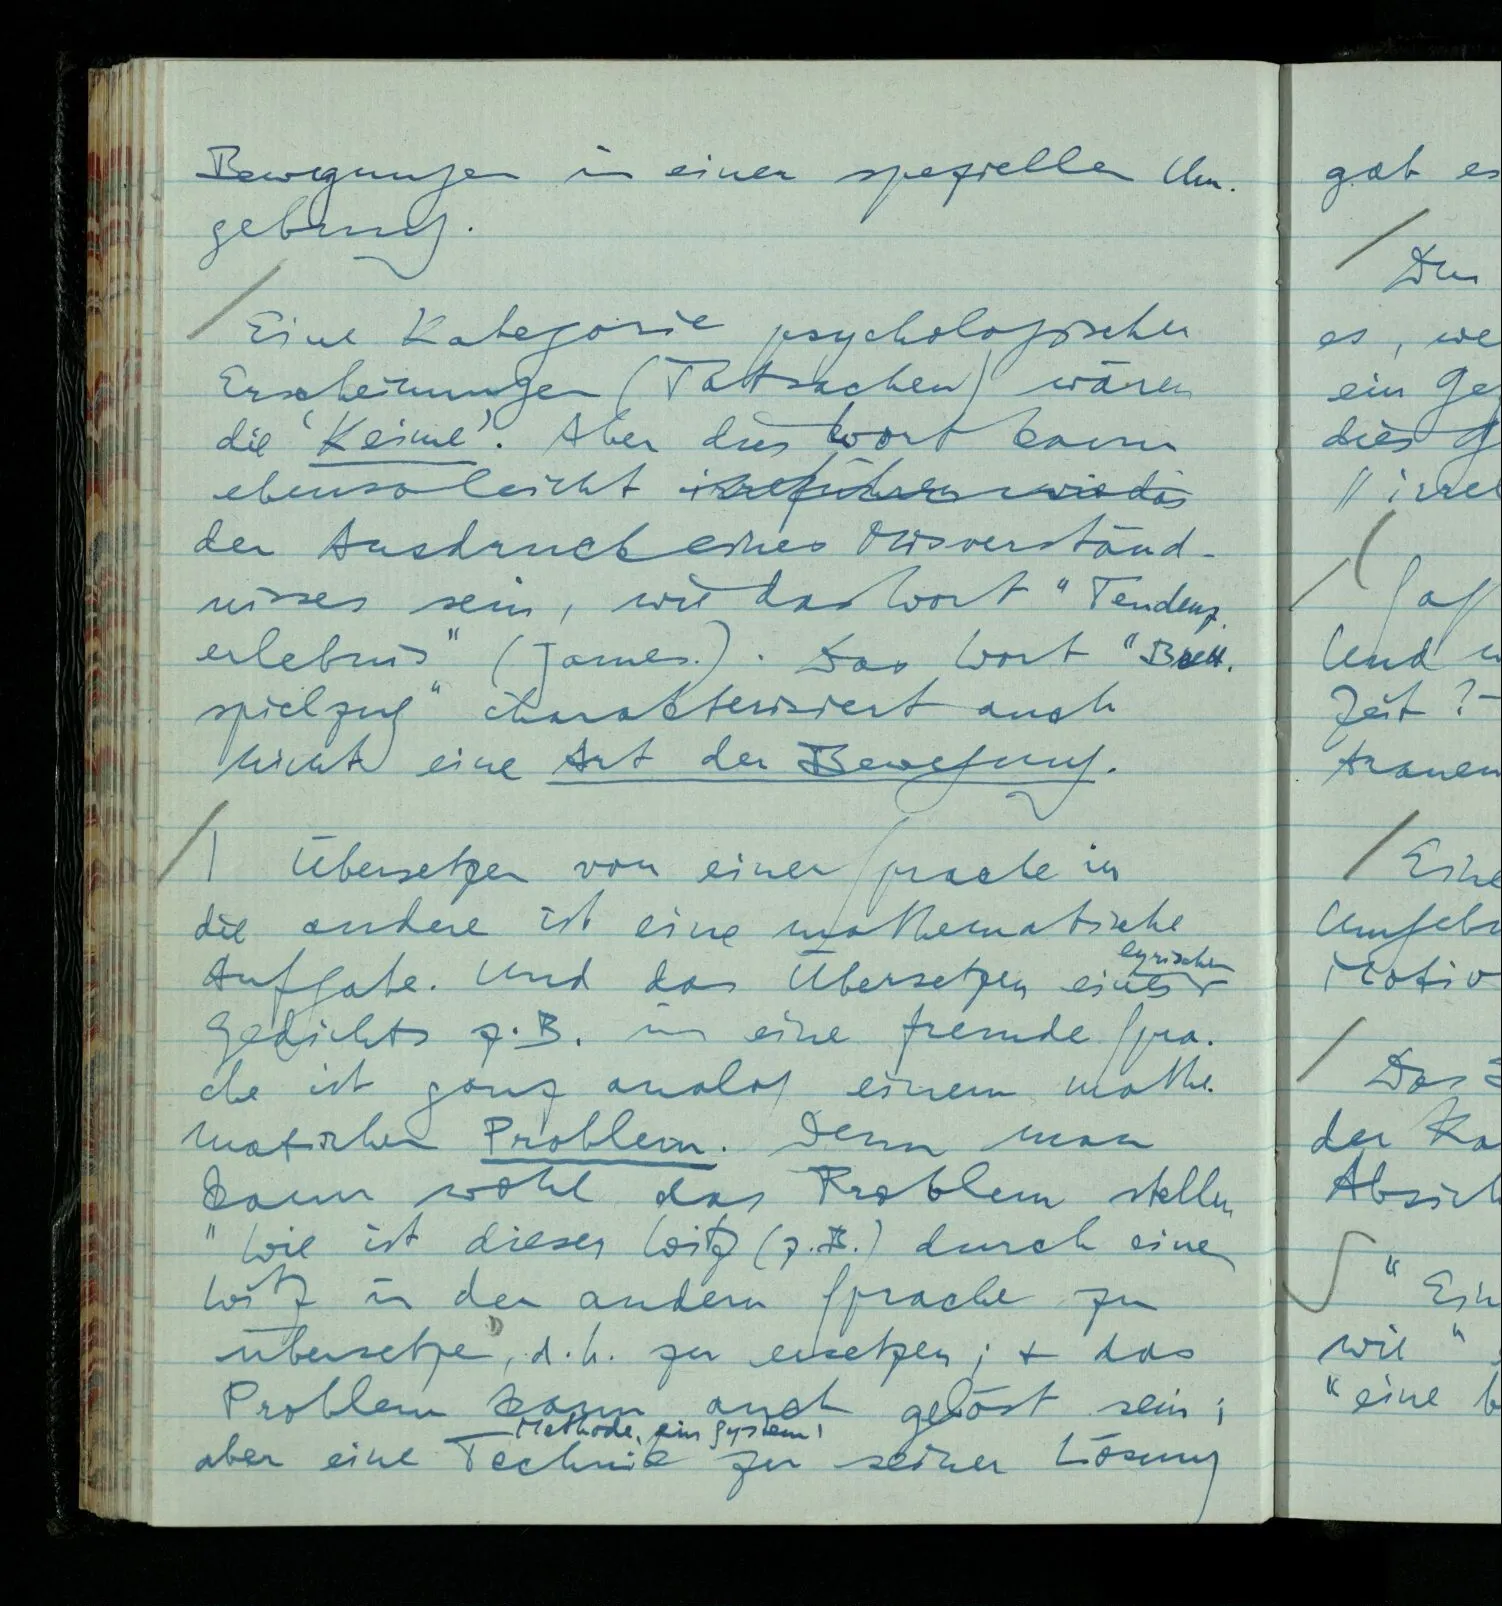 Bewegungen in einer speziellen Um-
gebung.
/ Eine Kategorie psychologischer
Erscheinungen (Tatsachen) wären
die 'Keime'. Aber dies Wort kann
ebensoleicht irreführen wie das
der Ausdruck eines Misverständ-
nisses sein, wie das Wort "Tendenz-
erlebnis" (James.). Das Wort "Brett-
spielzug" charakterisiert auch
nicht eine Art der Bewegung.
/ | Übersetzen von einer Sprache in
die andere ist eine mathematische
Aufgabe. Und das Übersetzen eines lyrischen
Gedichts z.B. in eine fremde Spra-
che ist ganz analog einem mathe-
matischen Problem. Denn man
kann wohl das Problem stellen
"Wie ist dieser Witz (z.B.) durch einen
Witz in der andern Sprache zu
übersetzen", d.h. zu ersetzen; & das
Problem kann auch gelöst sein;
aber eine Technik Methode, ein System, zu seiner Lösung
gab es
/
es, we
ein Ge
dies G
// irre
/
Und
Zeit? –
trauen
/ Eine
Umgebu
Motiv
/ Das
der Ka
Absich
∫ " Ein
wie "
"eine b